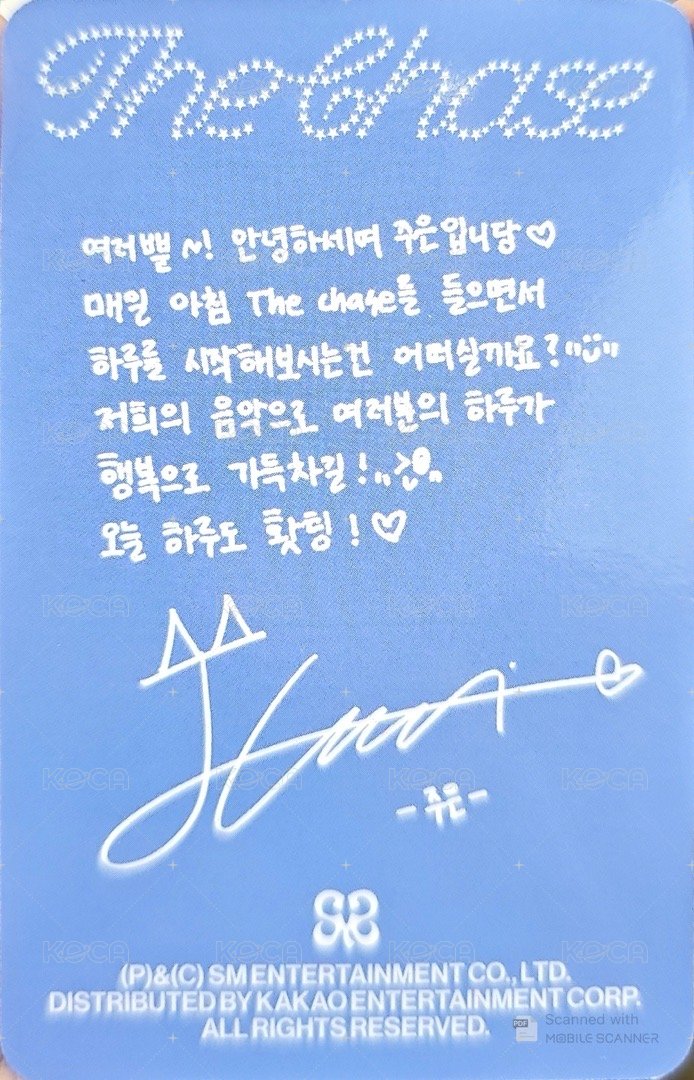 The Chase
여러쁠~! 안녕하세여 주은입니당♡
매일 아침 The chase를 들으면서
하루를 시작해보시는건 어떠실까요?
저희의 음악으로 여러분의 하루가
행복으로 가득차길!
오늘 하루도 홧팅! ♡
-주은-
(P)&(C) SM ENTERTAINMENT CO., LTD.
DISTRIBUTED BY KAKAO ENTERTAINMENT CORP.
ALL RIGHTS RESERVED.
KOCA
PDF Scanned with
MOBILE SCANNER